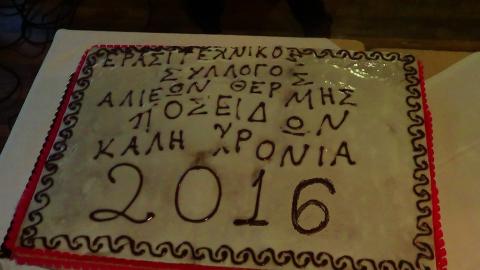 ΕΡΑΣΙΤΕΧΝΙΚΟΣ
ΣΥΛΛΟΓΟΣ
ΑΛΙΕΩΝ ΘΕΡΜΗΣ
ΠΟΣΕΙΔΩΝ
ΚΑΛΗ ΧΡΟΝΙΑ
2016